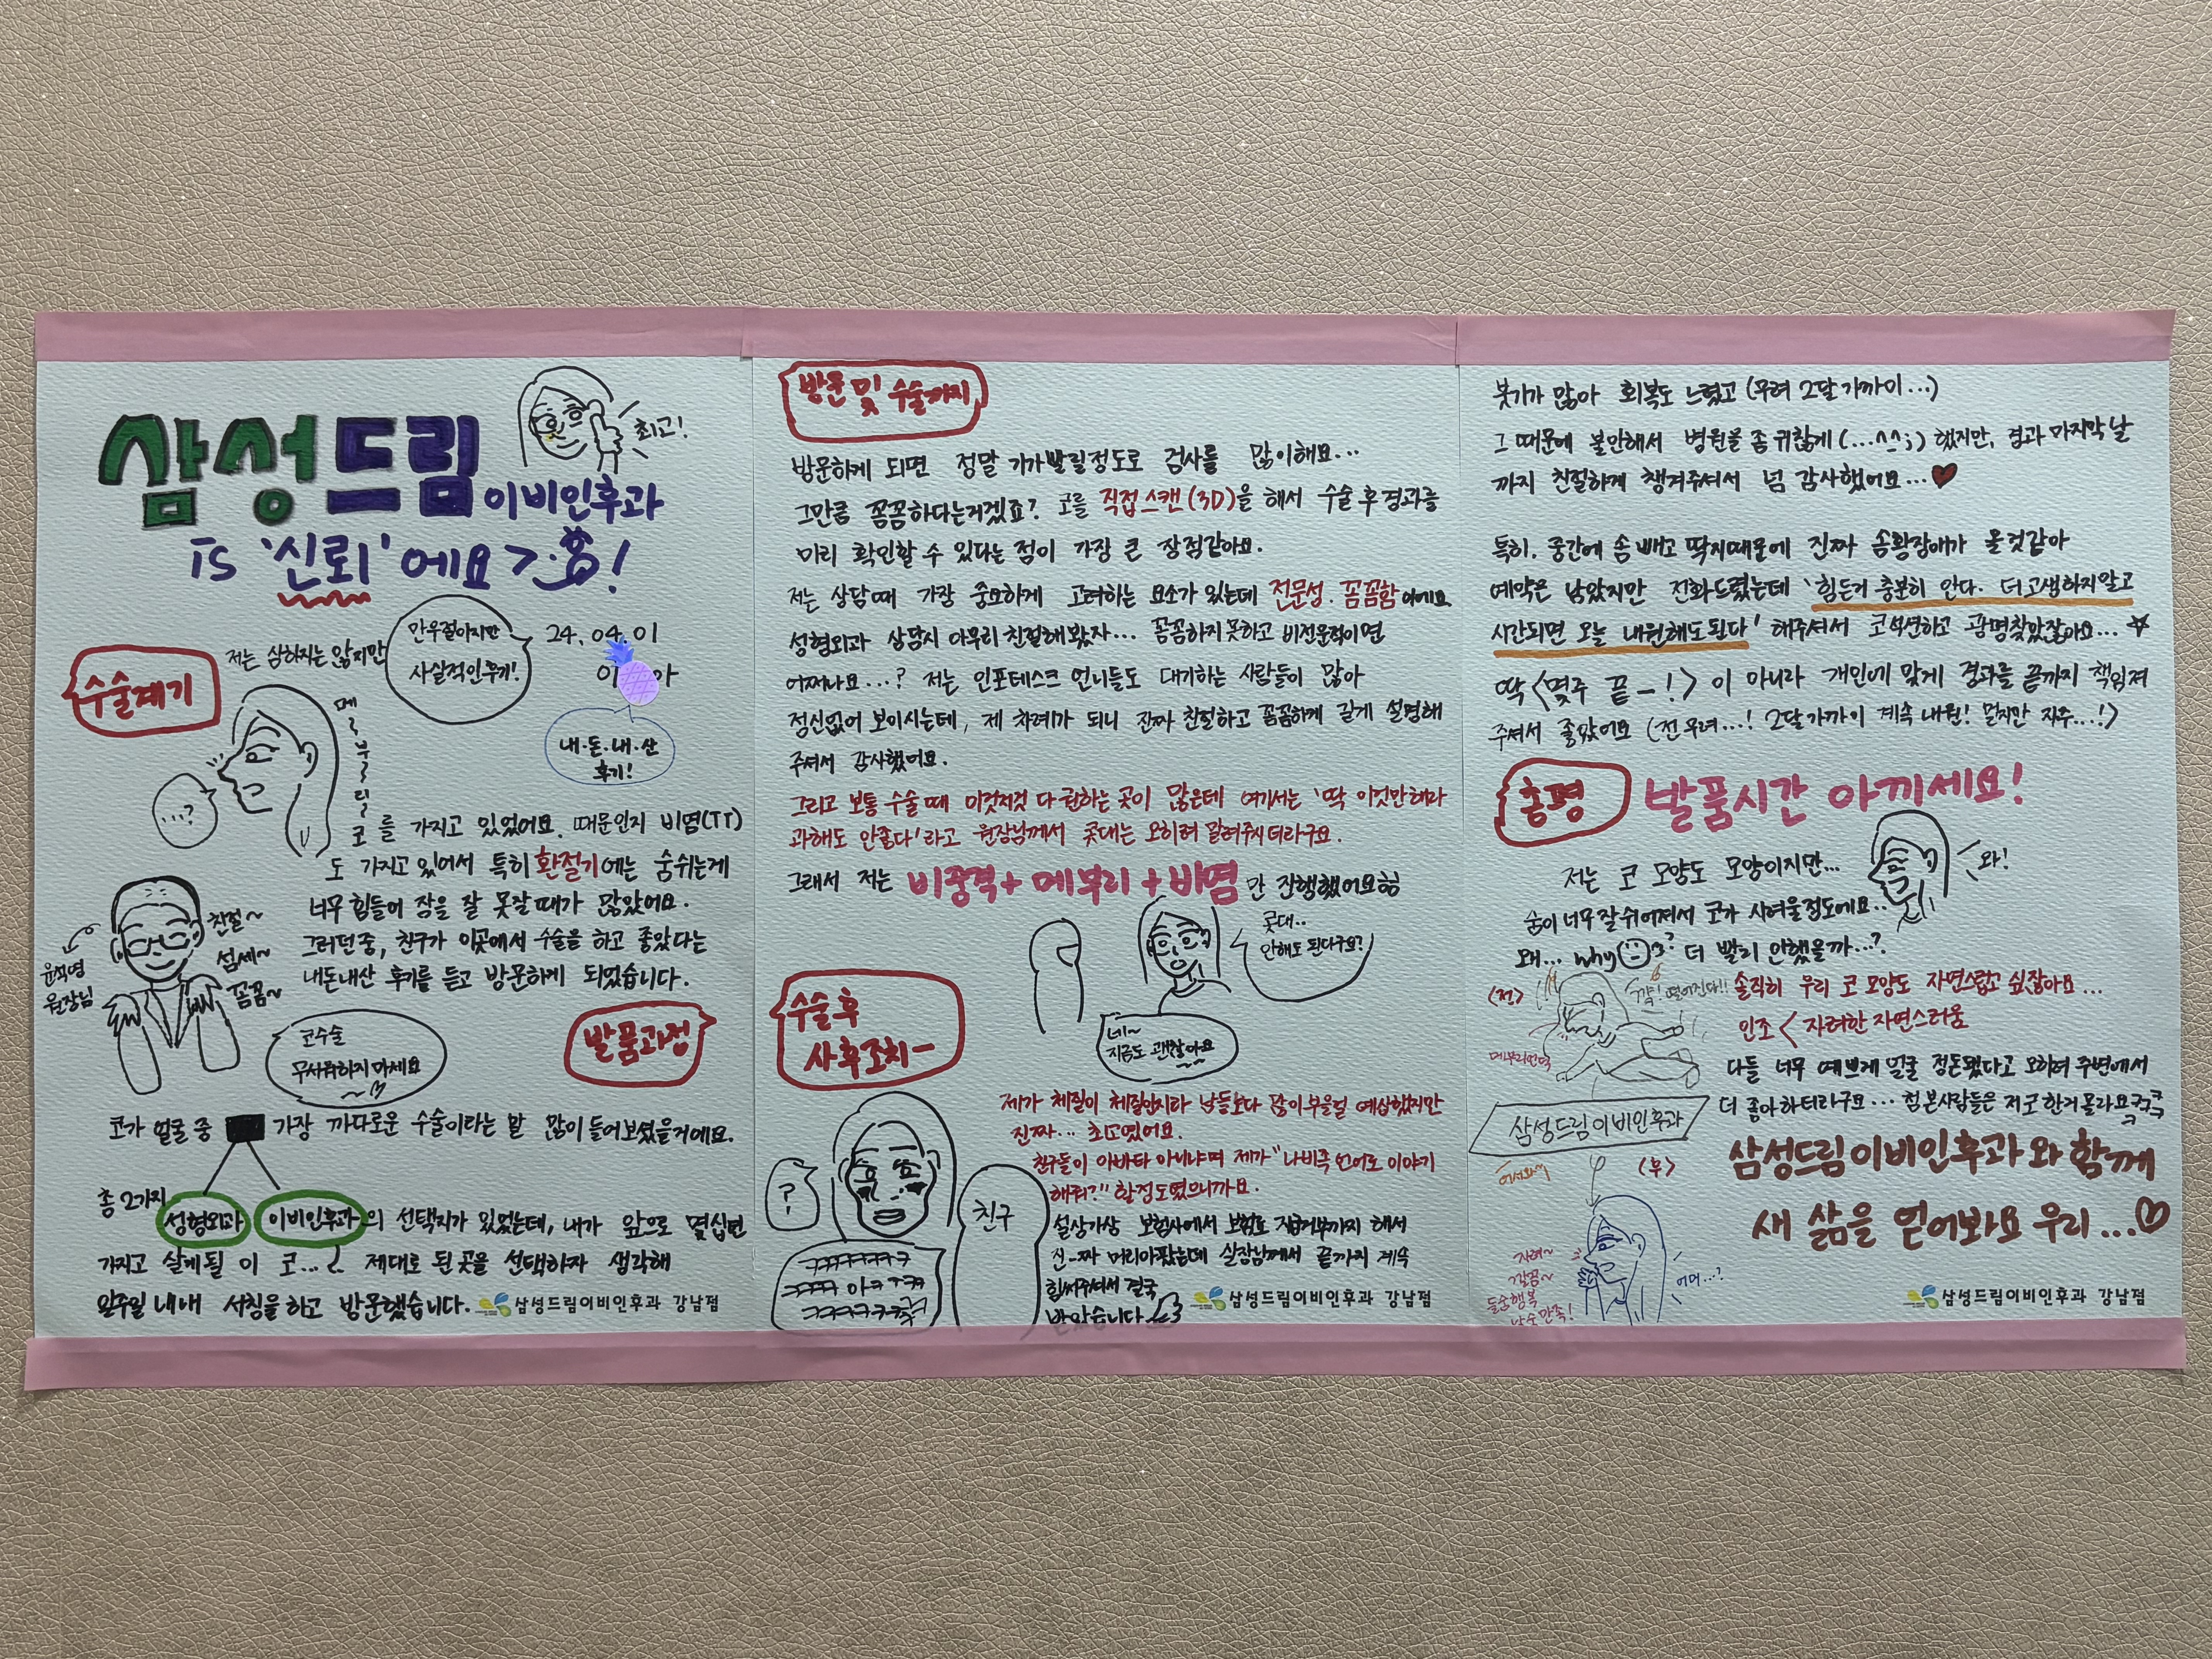 삼성드림이비인후과
is '신뢰' 에요 > !
최고!
만우절이지만
사실적인후기!
24. 04. 01
내·돈·내·산
후기!
수술계기
저는 심하지는 않지만
메~부~리~
코를 가지고 있었어요. 때문인지 비염(TT)
...?
도 가지고 있어서 특히 환절기에는 숨쉬는게
너무 힘들어 잠을 잘 못잘때가 많았어요.
그러던 중, 친구가 이곳에서 수술을 하고 좋았다는
내돈내산 후기를 듣고 방문하게 되었습니다.
친절~
섬세~
꼼꼼~
원장님
코수술
무서워하지 마세요
발품과정
코가 얼굴 중 가장 까다로운 수술이라는 말 많이 들어보셨을거에요.
총 2가지 성형외과 이비인후과의 선택지가 있었는데, 내가 앞으로 몇십년
가지고 살게될 이 코... 제대로 된 곳을 선택하자 생각해
일주일 내내 서칭을 하고 방문했습니다.
삼성드림이비인후과 강남점
방문 및 수술까지
방문하게 되면 정말 기가빨릴정도로 검사를 많이해요...
그만큼 꼼꼼하다는거겠죠? 코를 직접스캔(3D)을 해서 수술 후 경과를
미리 확인할 수 있다는 점이 가장 큰 장점같아요.
저는 상담때 가장 중요하게 고려하는 요소가 있는데 전문성. 꼼꼼함이에요
성형외과 상담시 아무리 친절해봤자... 꼼꼼하지못하고 비전문적이면
어쩌나요...? 저는 인포데스크 언니들도 대기하는 사람들이 많아
정신없어 보이시는데, 제 차례가 되니 진짜 친절하고 꼼꼼하게 길게 설명해
주셔서 감사했어요.
그리고 보통 수술때 이것저것 다 권하는 곳이 많은데 여기서는 '딱 이것만해라
과해도 안좋다'라고 원장님께서 콧대는 오히려 말려주시더라구요.
그래서 저는 비중격+메부리+비염만 진행했어요
콧대...
안해도 된다구요?
네~
지금도 괜찮아요
수술 후
사후조치-
제가 체질이 체질인지라 남들보다 많이부을걸 예상했지만
진짜... 최고였어요.
친구들이 아바타 아니냐며 제가 "나비족 언어로 이야기
해줘?" 할정도였으니까요.
설상가상 보험사에서 보험료 지급거부까지 해서
진-짜 머리아팠는데 실장님께서 끝까지 계속
힘써주셔서 결국
받았습니다
?
친구
삼성드림이비인후과 강남점
붓기가 많아 회복도 느렸고 (무려 2달 가까이...)
그 때문에 불안해서 병원을 좀 귀찮게(...^^;) 했지만, 경과 마지막 날
까지 친절하게 챙겨주셔서 넘 감사했어요...♥
특히. 중간에 솜 빼고 딱지때문에 진짜 공황장애가 올것같아
예약은 남았지만 전화드렸는데 '힘든거 충분히 안다. 더 고생하지말고
시간되면 오늘 내원해도된다' 해주셔서 코석션하고 광명찾았잖아요...☆
딱 <몇주 끝-!> 이 아니라 개인에 맞게 경과를 끝까지 책임져
주셔서 좋았어요 (전 무려...! 2달가까이 계속 내원! 멀지만 자주...!)
총평
발품시간 아끼세요!
저는 코 모양도 모양이지만...
와!
숨이 너무 잘 쉬어져서 코가 시려울정도에요..
왜... why ? 더 빨리 안했을까...?
<전>
떨어진다!!
솔직히 우리 코 모양도 자연스럽고 싶잖아요...
인조 < 자려한 자연스러움
다들 너무 예쁘게 얼굴 정돈됐다고 오히려 주변에서
더 좋아하더라구요... 첨 본사람들은 저 코 한거 몰라요
삼성드림이비인후과
<후>
삼성드림이비인후과와 함께
새 삶을 얻어봐요 우리...♡
어머...?
삼성드림이비인후과 강남점